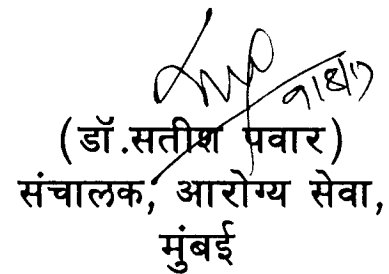 9/8/17
(डॉ.सतीश पवार)
संचालक, आरोग्य सेवा,
मुंबई